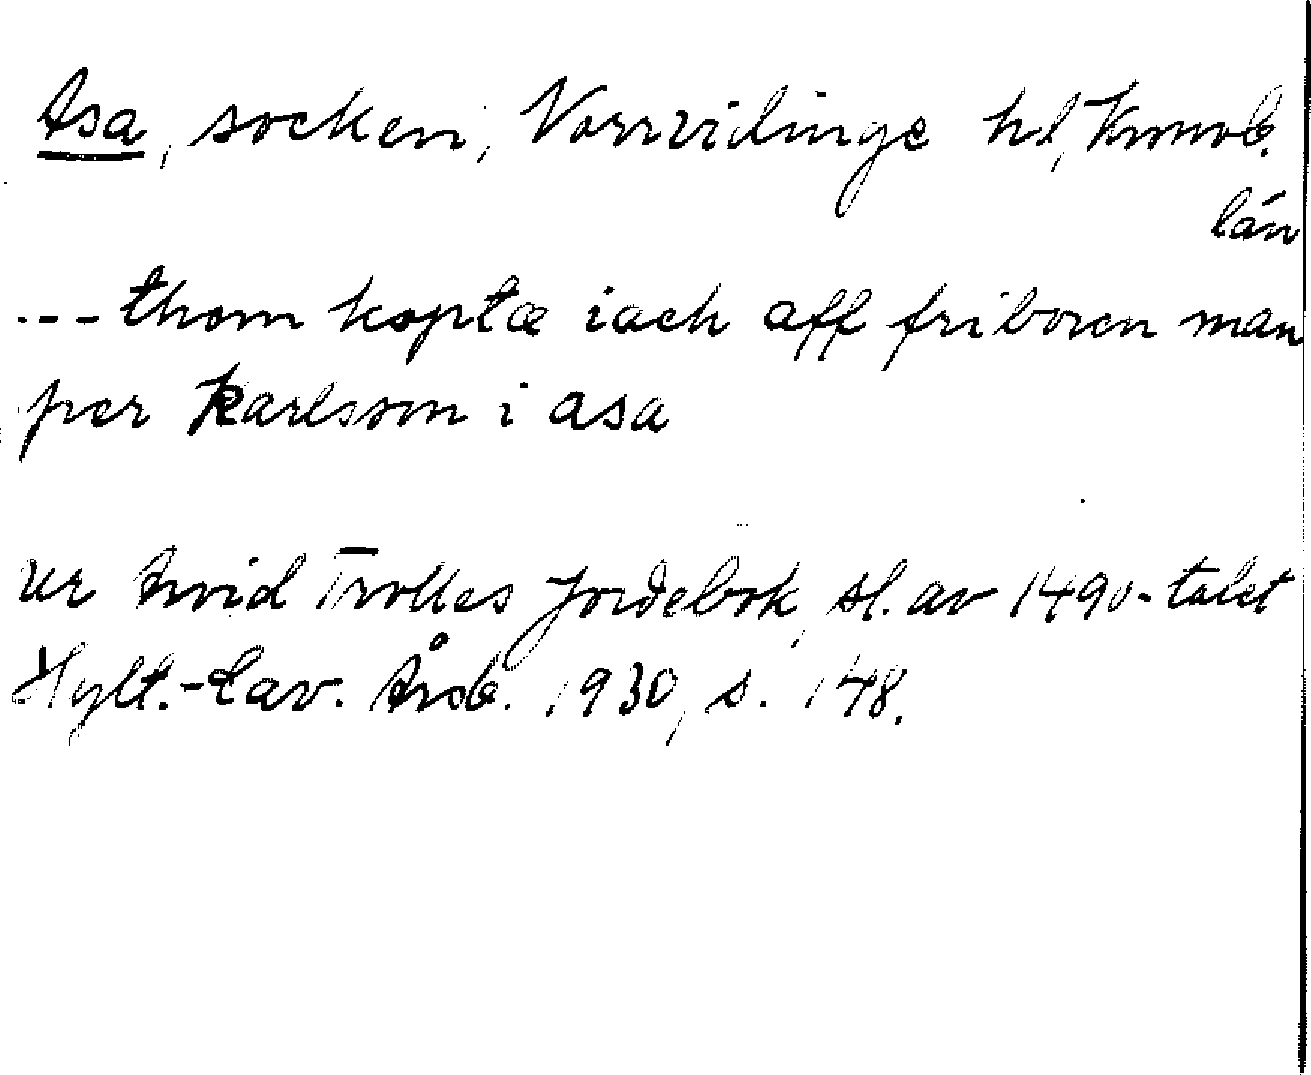 Asa, socken, Norrvidinge hd, Kronob.
län
--- thom køptæ iach aff friboren man
per Karlsson i asa
ur Arvid Trolles Jordebok, sl. av 1490-talet
Hylt.-Cav. Årsb. 1930, s. 148.